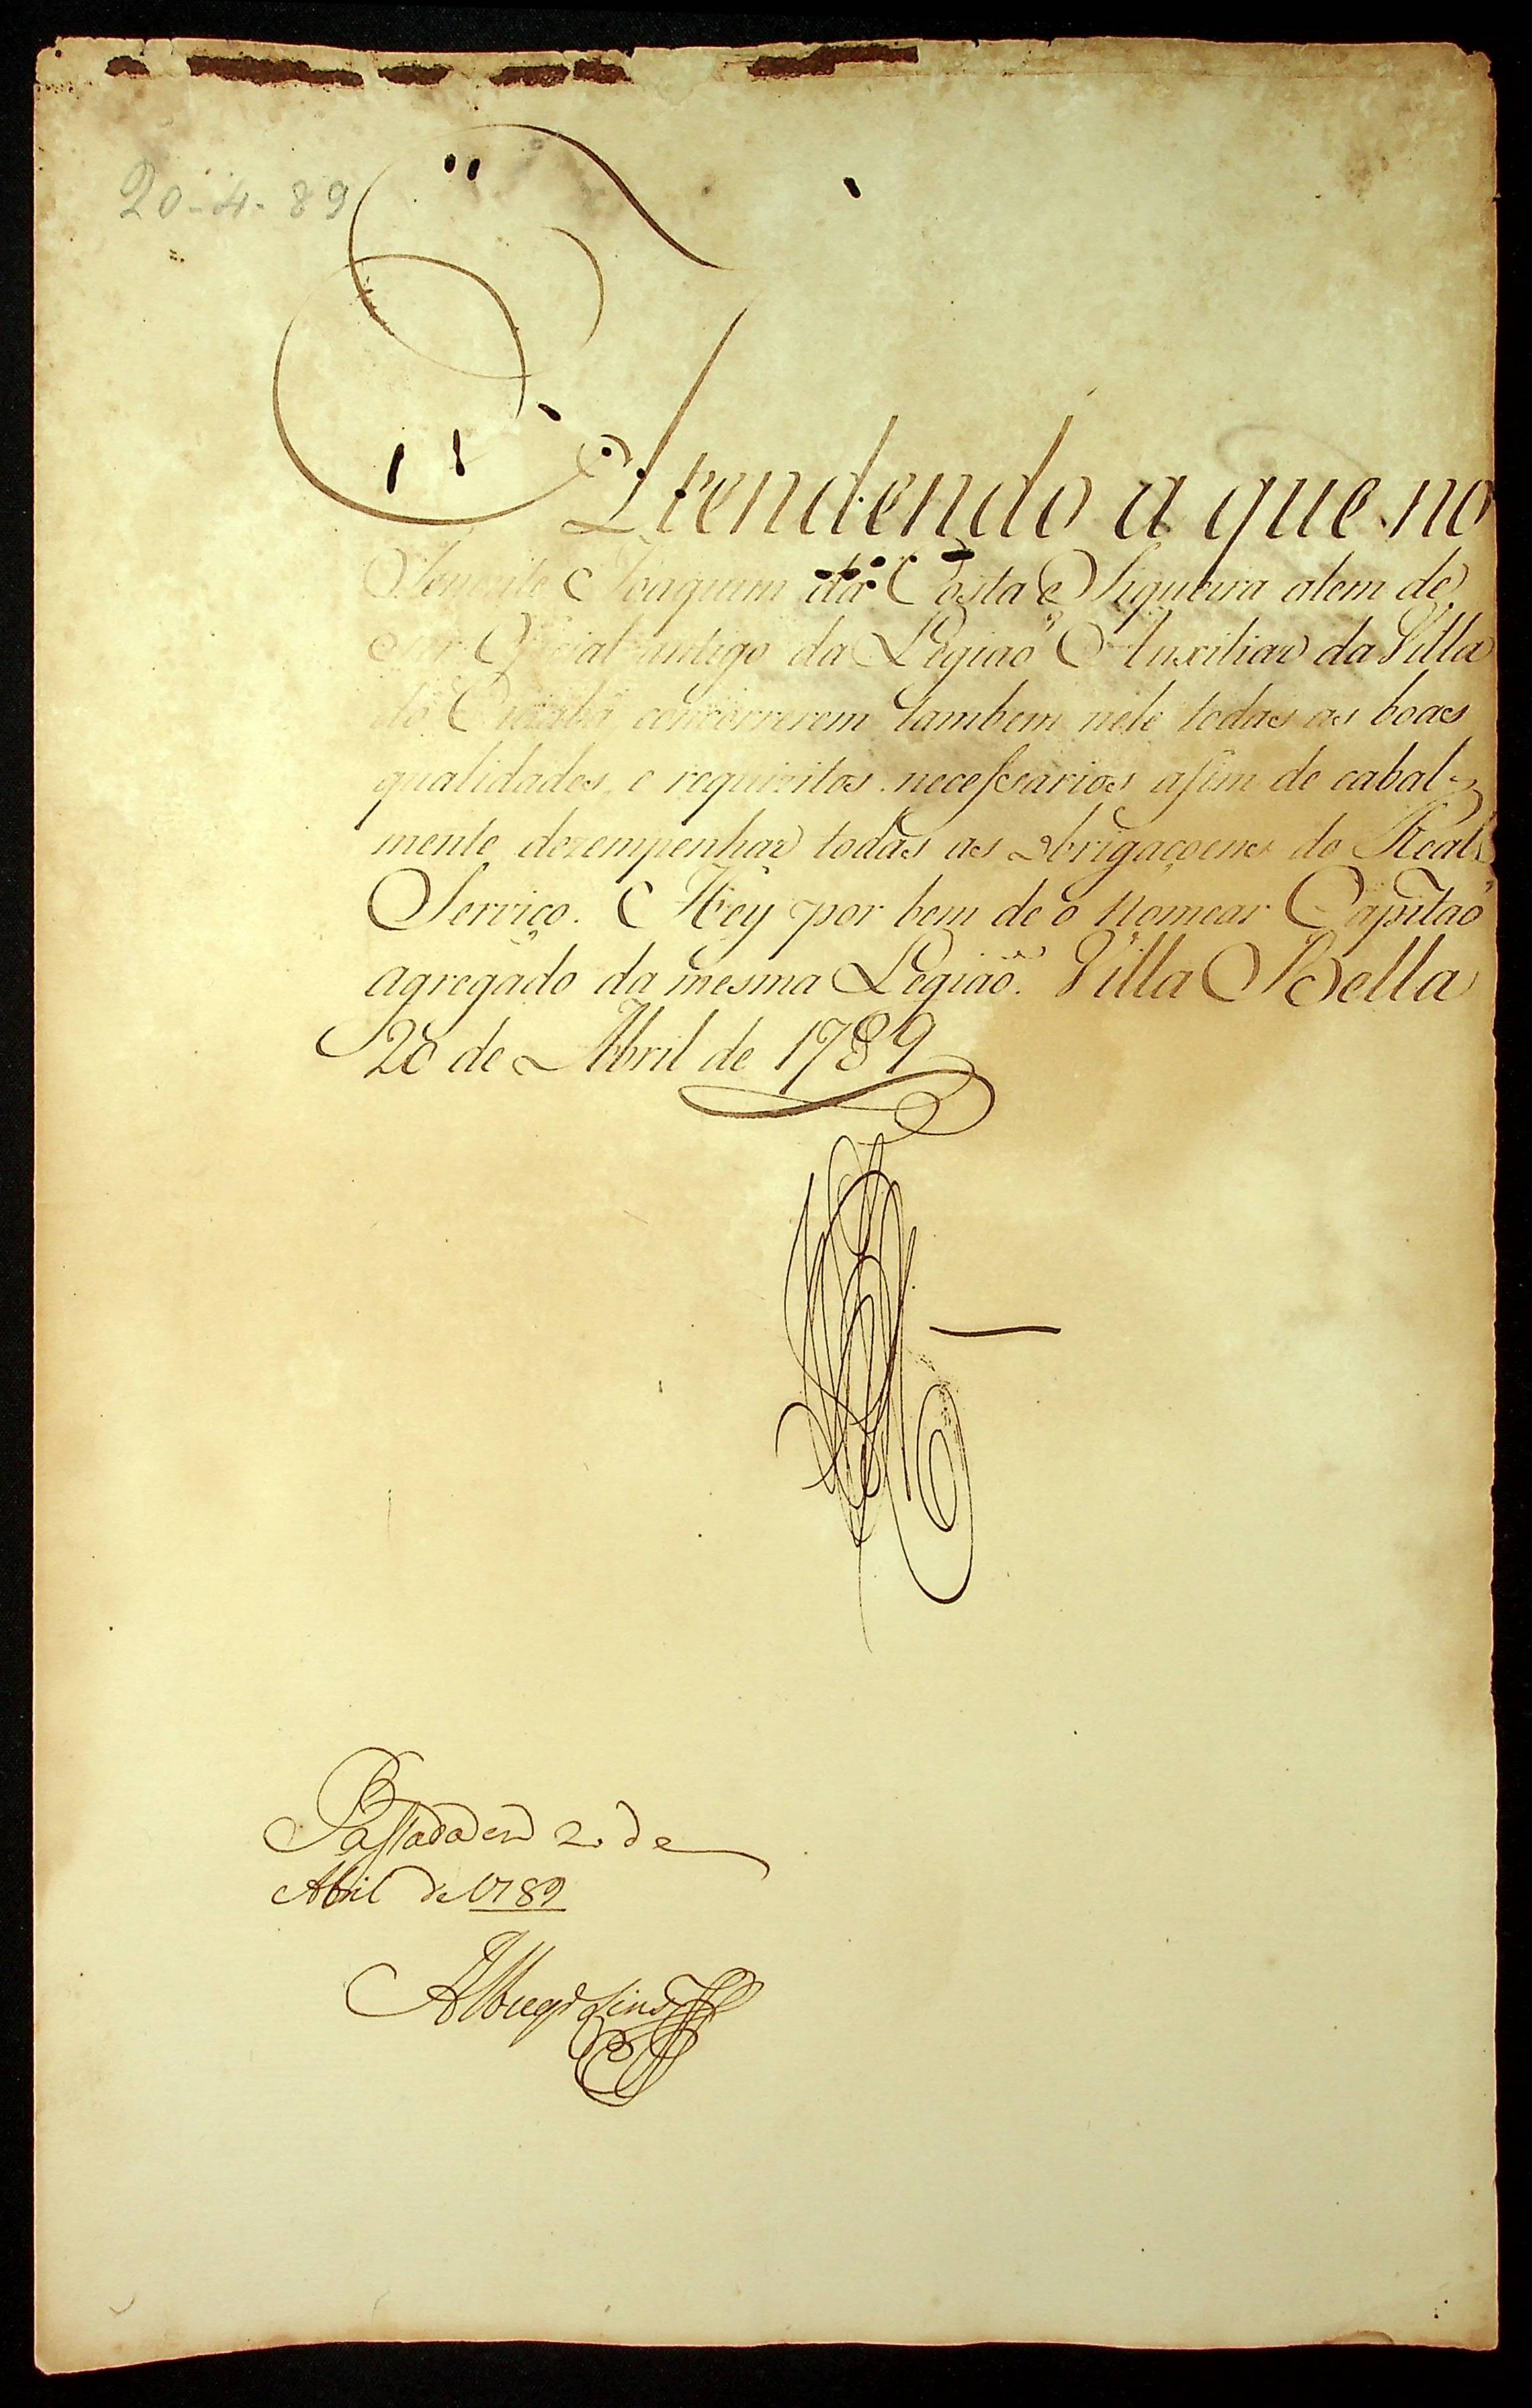 20-4-89
Atendendo a que no
Tenente Joaquim da Costa Siqueira alem de
ser Oficial antigo da Legiaõ Auxiliar da Villa
do Cuiabá concorrerem tambem nele todas as boas
qualidades, e requizitos necessarios afim de cabal-
mente dezempenhar todas as obrigaçoens do Real
Serviço. Hey por bem de o nomear Capitaõ
agregado da mesma Legiaõ. Villa Bella
20 de Abril de 1789
Passada em 2 de
Abril de 1789